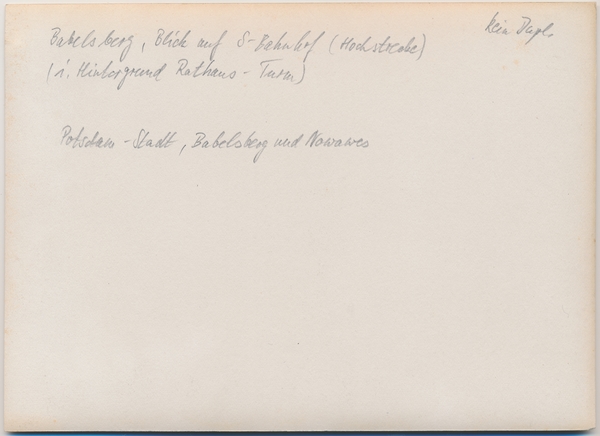 Kein Dupl.
Babelsberg, Blick auf S-Bahnhof (Hochstrecke)
(i. Hintergrund Rathaus-Turm)
Potsdam-Stadt, Babelsberg und Nowawes